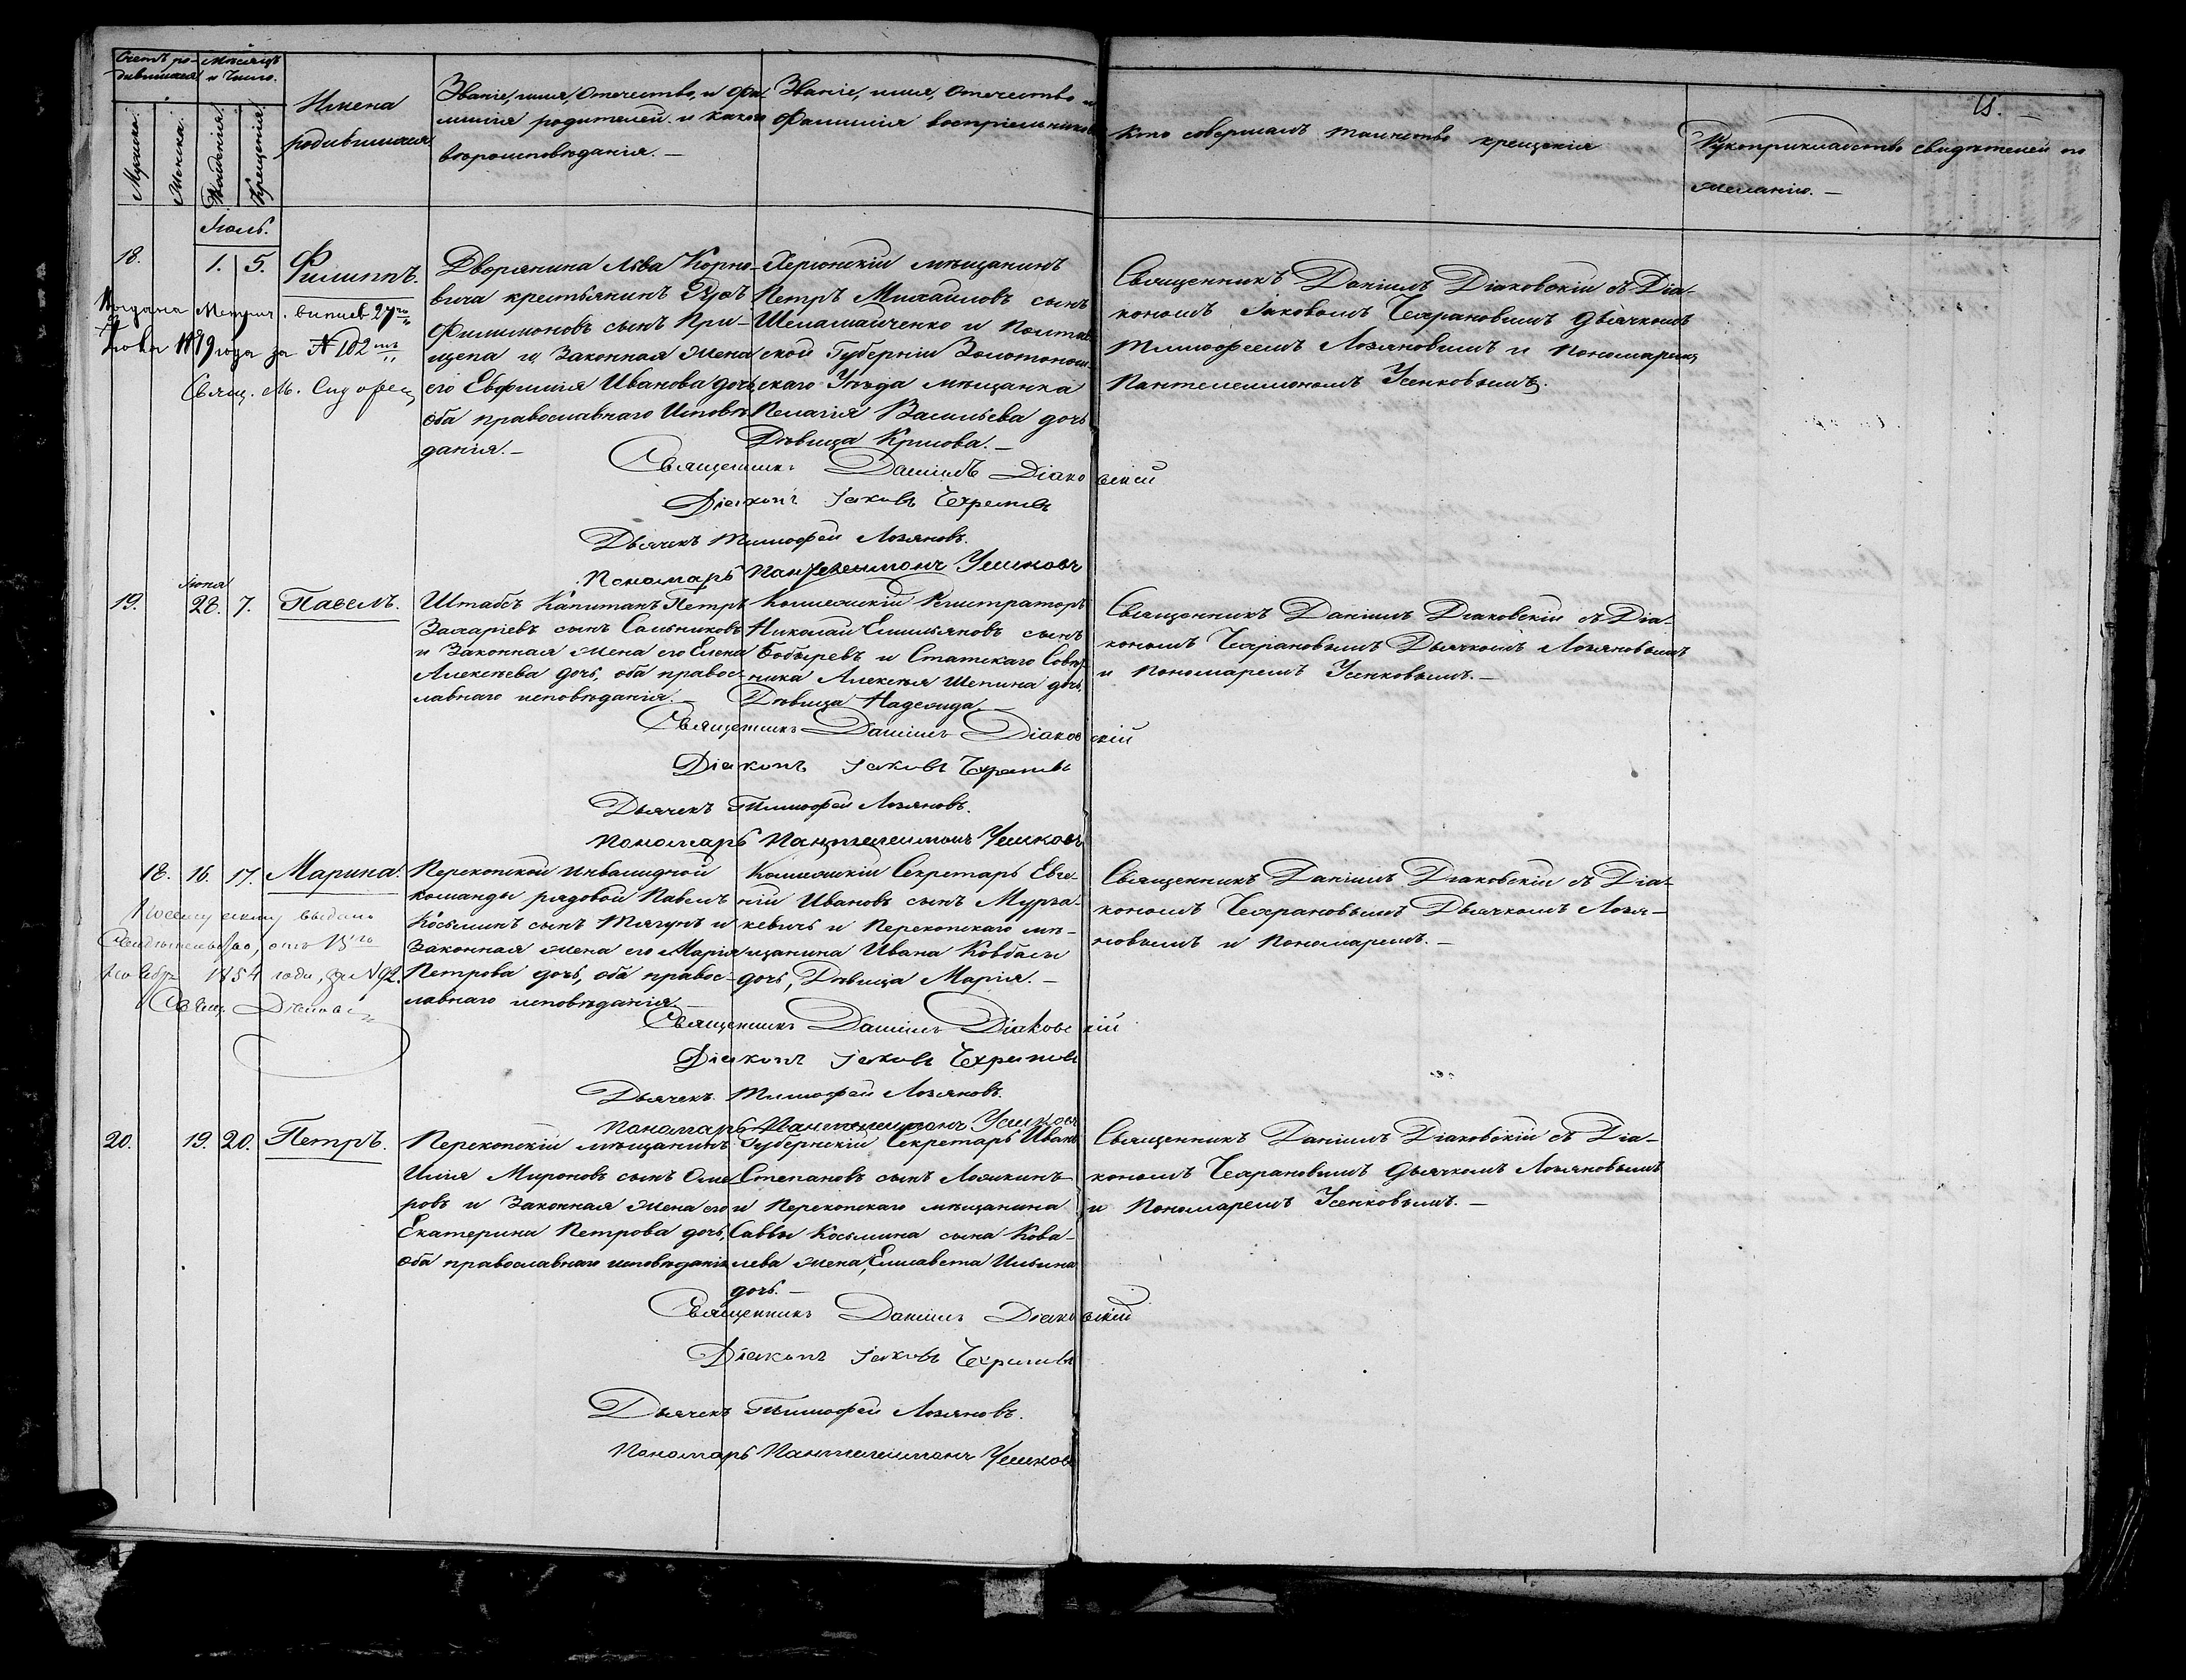 Счетъ ро-
дившихся
Мѣсяцъ
и Число.
Мужска.
Женска.
Рожденія.
Крещенія.
Имена
родившихся.
Званіе, имя, Отечество, и фа-
милія родителей и какого
вѣроисповѣданія. —
Званіе, имя, Отечество и
Фамилія воспріемниковъ
Кто совершалъ таинство крещенія
Рукоприкладство свидѣтелей по
желанію. —
Іюль.
18.
1.
5.
Филиппъ.
Выдана Метрич. выпись 27го
1879 года за № 102мъ
Свящ. М.
Дворянина Льва Корно-
вича крестьянинъ
Филимоновъ сынъ При-
щепа и Законная жена
его Евфимія Иванова дочь
оба православнаго Исповѣ-
данія. —
Херсонскій мѣщанинъ
Петръ Михаиловъ сынъ
Шеламайченко и Полтав-
ской Губерніи Золотонош-
скаго Уѣзда мѣщанка
Пелагія Васильева дочь
Дѣвица Крилова. —
Священникъ Даніилъ Діаковскій съ Діа-
кономъ Іаковомъ Чехрановымъ дьячкомъ
Тимофеемъ Лозяновымъ и Пономаремъ
Пантелеимономъ Усенковымъ.
Священникъ Даніилъ Діаковскій
Діаконъ Іаковъ Чехрановъ
Дьячекъ Тимофей Лозяновъ.
Пономарь Пантелеимонъ Усенковъ
19.
Іюня
28.
7.
Павелъ.
Штабсъ Капитанъ Петръ
Захаріевъ сынъ Сальниковъ
и Законная жена его Елена
Алексѣева дочь, оба правос-
лавнаго исповѣданія. —
Коллежскій Регистраторъ
Николай Емильяновъ сынъ
Бобыревъ и Статскаго Совѣт-
ника Алексѣя Шепина дочь
Дѣвица Надежда. —
Священникъ Даніилъ Діаковскій съ Діа-
кономъ Чехрановымъ Дьячкомъ Лозяновымъ
и Пономаремъ Усенковымъ. —
Священникъ Даніилъ Діаковскій
Діаконъ Іаковъ Чехрановъ
Дьячекъ Тимофей Лозяновъ.
Пономарь Пантелеимонъ Усенковъ
18.
16.
17.
Марина.
выдано
Свидѣтельство, отъ 15го
1854 года, за № 92.
Свящ.
Перекопской инвалидной
команды рядовой Павелъ
Косьминъ сынъ Тягунъ и
Законная жена его Марія
Петрова дочь, оба правос-
лавнаго исповѣданія. —
Коллежскій Секретарь Евге-
ній Ивановъ сынъ Мурза-
кевичь и Перекопскаго мѣ-
щанина Ивана Ковбасы
дочь, Дѣвица Марія. —
Священникъ Даніилъ Діаковскій съ Діа-
кономъ Чехрановымъ Дьячкомъ Лозя-
новымъ и Пономаремъ. —
Священникъ Даніилъ Діаковскій
Діаконъ Іаковъ Чехрановъ
Дьячекъ Тимофей Лозяновъ.
Пономарь Пантелеимонъ Усенковъ
20.
19.
20.
Петръ.
Перекопскій мѣщанинъ
Илія Мироновъ сынъ Оме-
ровъ и Законная жена его
Екатерина Петрова дочь,
оба православнаго исповѣданія
Губернскій Секретарь Иванъ
Степановъ сынъ Ложкинъ
и Перекопскаго мѣщанина
Саввы Косьмина сына Кова-
лева жена, Елисавета Ильина
дочь. —
Священникъ Даніилъ Діаковскій съ Діа-
кономъ Чехрановымъ дьячкомъ Лозяновымъ
и Пономаремъ Усенковымъ. —
Священникъ Даніилъ Діаковскій
Діаконъ Іаковъ Чехрановъ
Дьячекъ Тимофей Лозяновъ.
Пономарь Пантелеимонъ Усенковъ